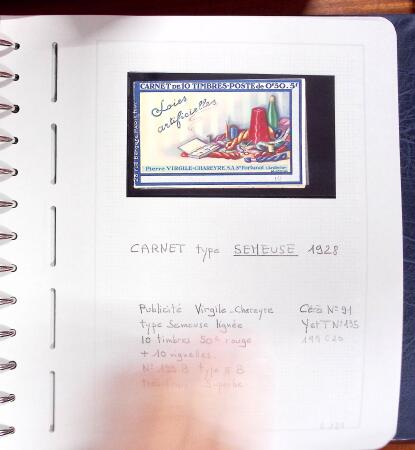 CARNET DE 10 TIMBRES-POSTE DE 0F50.5F
Soies
artificielles
Pierre VIRGILE-CHAREYRE. S.A. St Fortunat
CARNET type SEMEUSE 1928
Publicité Virgile-Chareyre Cérès N° 91
type Semeuse lignée Y et T N° 195
10 timbres 50c rouge 199 C20
+ 10 vignettes.
N° 199 B type II B
Superbe